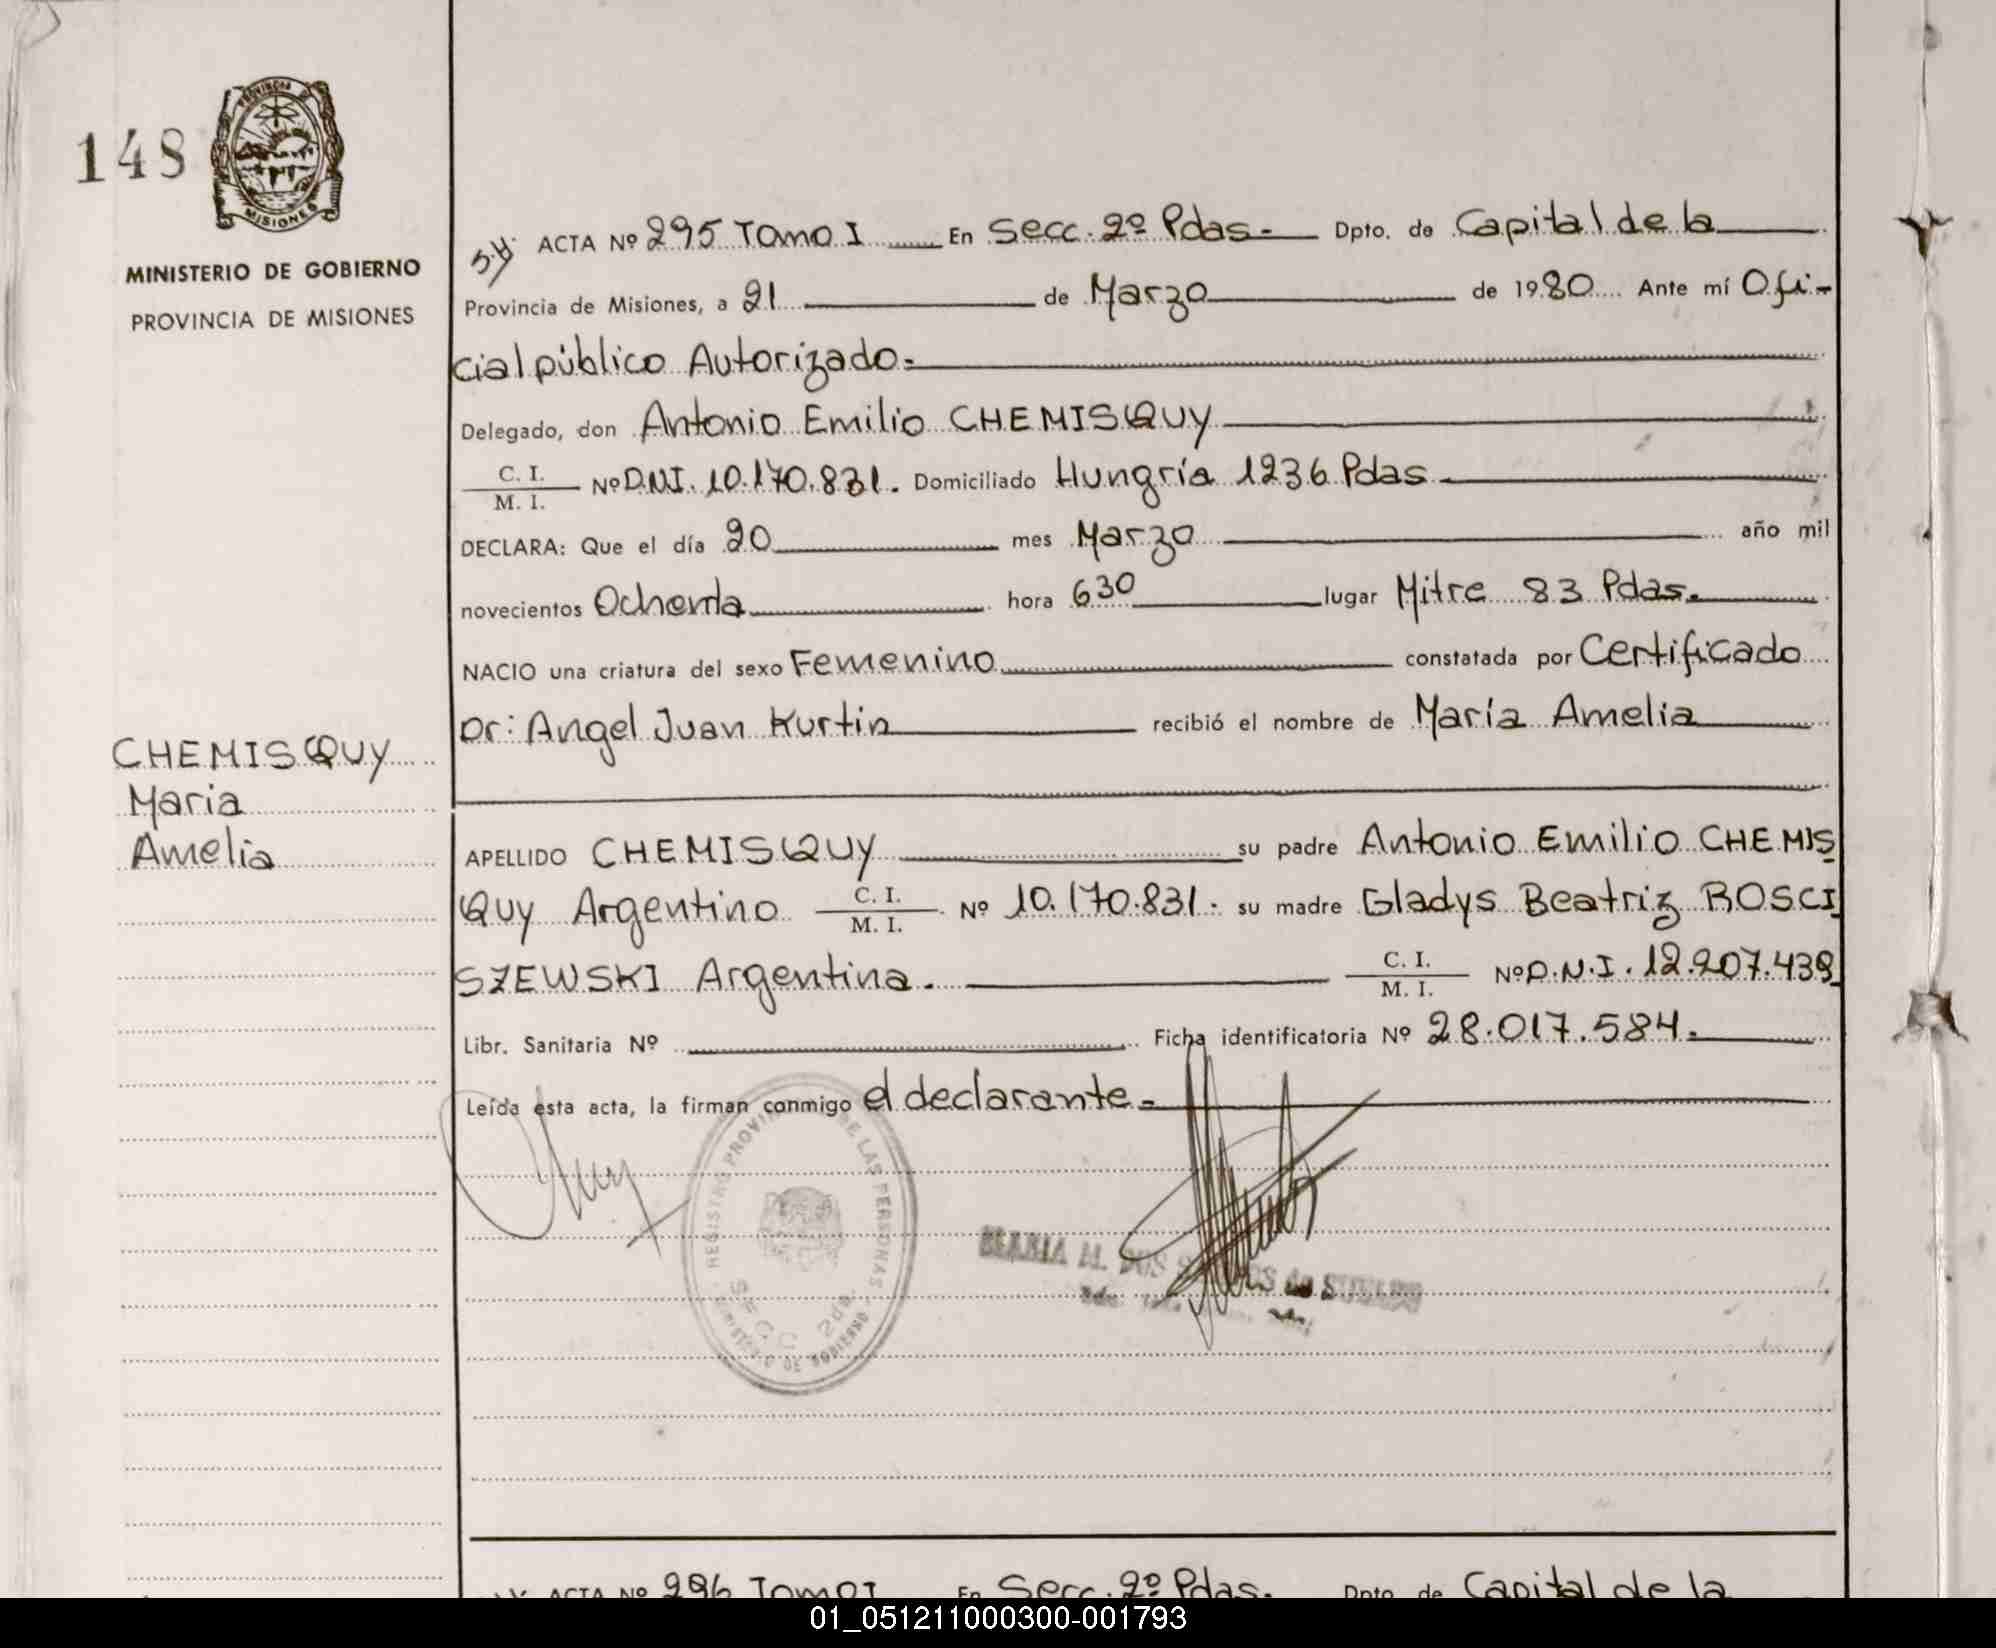 148
PROVINCIA DE
MISIONES
MINISTERIO DE GOBIERNO
PROVINCIA DE MISIONES
CHEMISQUY
Maria
Amelia
ACTA Nº 295 Tomo I En Secc. 2º Pdas.- Dpto. de Capital de la
Provincia de Misiones, a 21 de Marzo de 1980 Ante mí Ofi-
cial público Autorizado.-
Delegado, don Antonio Emilio CHEMISQUY
C. I.
M. I. Nº D.N.I. 10.170.831. Domiciliado Hungría 1236 Pdas
DECLARA: Que el día 20 mes Marzo año mil
novecientos Ochenta hora 6 30 lugar Mitre 83 Pdas.
NACIO una criatura del sexo Femenino constatada por Certificado
Dr: Angel Juan Kurtin recibió el nombre de María Amelia
APELLIDO CHEMISQUY su padre Antonio Emilio CHEMIS
QUY Argentino C. I. M. I. Nº 10.170.831. su madre Gladys Beatriz ROSCI
SZEWSKI Argentina. C. I. M. I. Nº D.N.I. 12.207.439
Libr. Sanitaria Nº Ficha identificatoria Nº 28.017.584.
Leída esta acta, la firman conmigo el declarante.-
REGISTRO PROVINCIAL DE LAS PERSONAS
SECC. 2da.
MINISTERIO DE GOBIERNO
MARIA
ACTA Nº 296 Tomo I En Secc. 2º Pdas. Dpto. de Capital de la
01_051211000300-001793